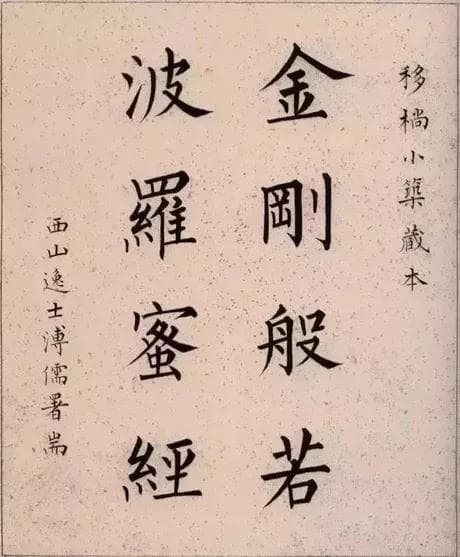 移橢小築藏本
金剛般若
波羅蜜經
西山逸士溥儒署耑